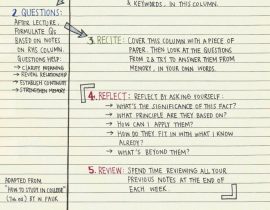 & KEYWORDS, IN THIS COLUMN.
2. QUESTIONS:
AFTER LECTURE,
FORMULATE Qs
BASED ON NOTES
ON RHS COLUMN.
QUESTIONS HELP:
→ CLARIFY MEANING
→ REVEAL RELATIONSHIP
→ ESTABLISH CONTINUITY
→ STRENGTHEN MEMORY
3. RECITE: COVER THIS COLUMN WITH A PIECE OF
PAPER. THEN LOOK AT THE QUESTIONS
FROM 2 & TRY TO ANSWER THEM FROM
MEMORY, IN YOUR OWN WORDS.
4. REFLECT: REFLECT BY ASKING YOURSELF:
→ WHAT'S THE SIGNIFICANCE OF THIS FACT?
→ WHAT PRINCIPLE ARE THEY BASED ON?
→ HOW CAN I APPLY THEM?
→ HOW DO THEY FIT IN WITH WHAT I KNOW
ALREADY?
→ WHAT'S BEYOND THEM?
5. REVIEW: SPEND TIME REVIEWING ALL YOUR
PREVIOUS NOTES AT THE END OF
EACH WEEK.
ADAPTED FROM
"HOW TO STUDY IN COLLEGE"
(7th ed.) BY W. PAUK